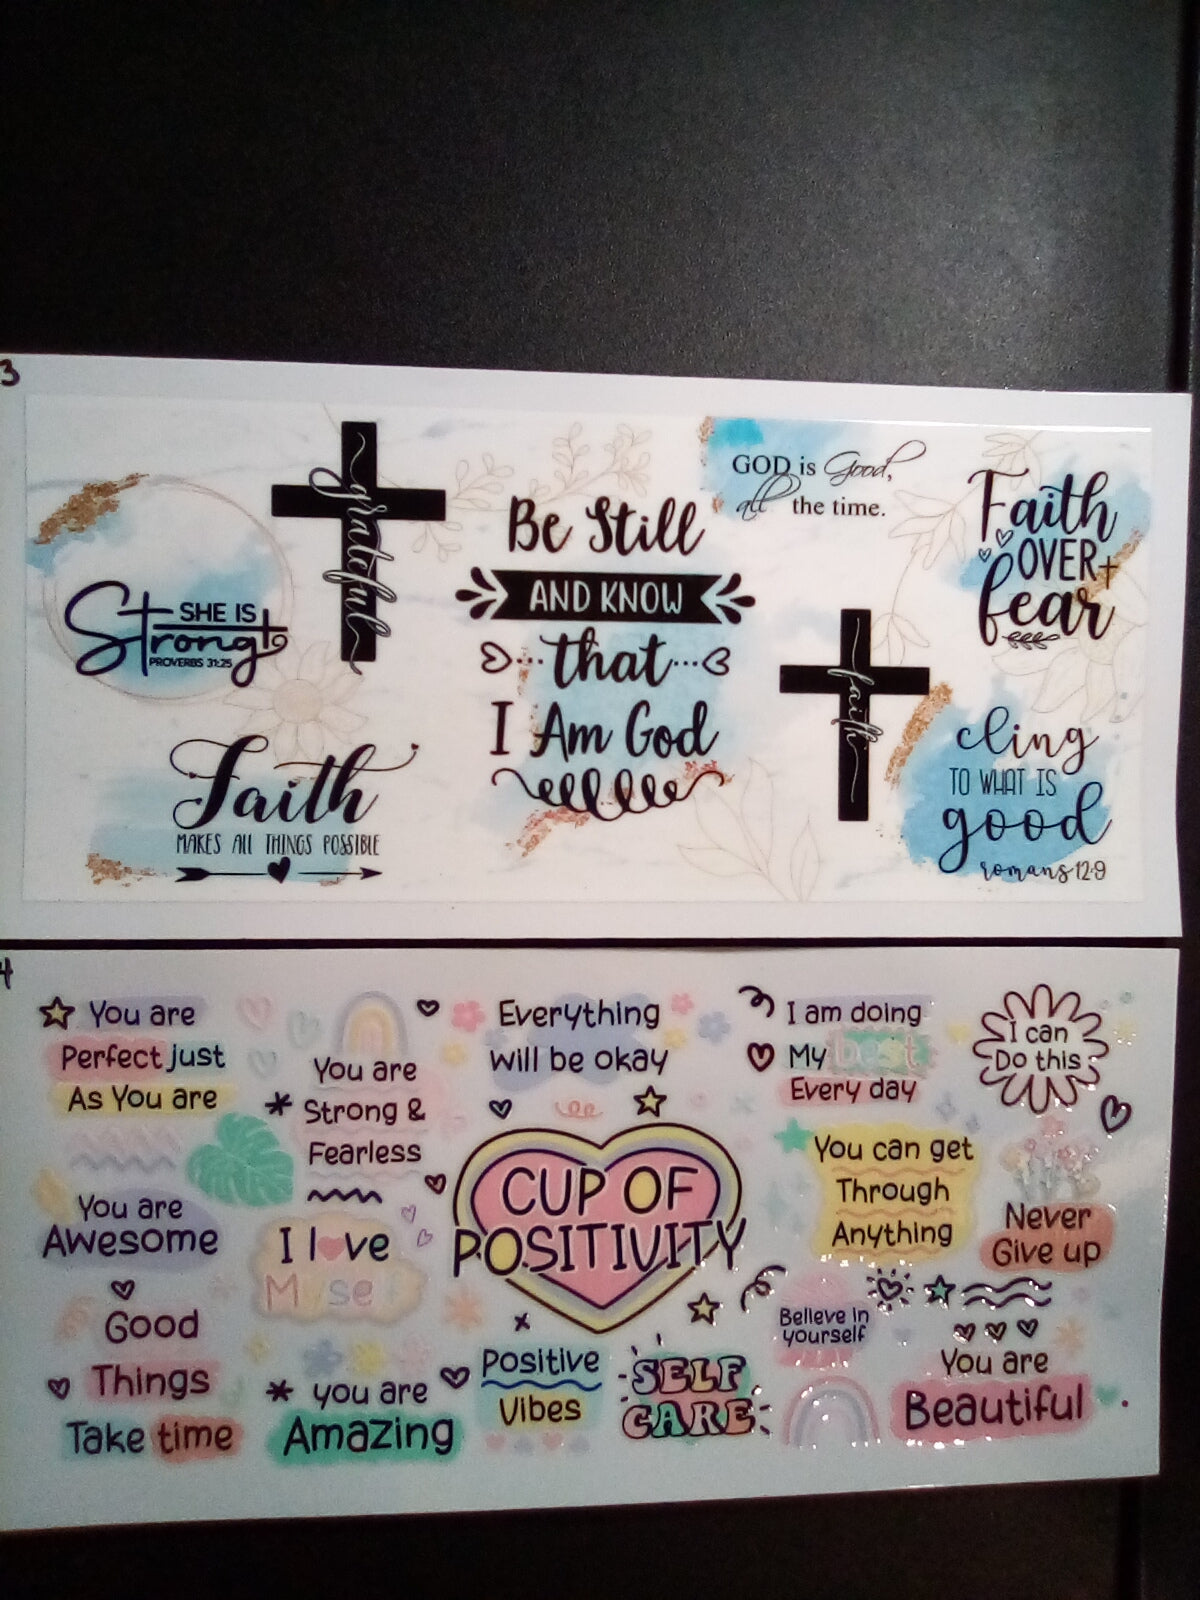 3
grateful
SHE IS
Strong
PROVERBS 31:25
Faith
MAKES ALL THINGS POSSIBLE
Be Still
AND KNOW
that
I Am God
GOD is Good,
all the time.
faith
Faith
OVER
fear
cling
TO WHAT IS
good
romans 12:9
4
You are
Perfect just
As You are
You are
Strong &
Fearless
You are
Awesome
I love
Myself
Good
Things
Take time
you are
Amazing
Everything
Will be okay
CUP OF
POSITIVITY
Positive
Vibes
SELF
CARE
I am doing
My best
Every day
I can
Do this
You can get
Through
Anything
Never
Give up
Believe in
yourself
You are
Beautiful